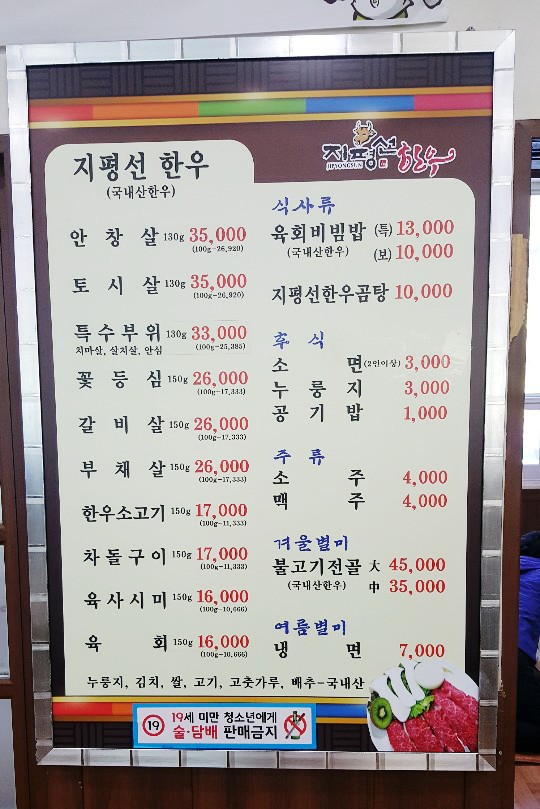 지평선 한우
(국내산한우)
안창살 130g 35,000
(100g-26,920)
토시살 130g 35,000
(100g-26,920)
특수부위 130g 33,000
치마살, 살치살, 안심 (100g-25,385)
꽃등심 150g 26,000
(100g-17,333)
갈비살 150g 26,000
(100g-17,333)
부채살 150g 26,000
(100g-17,333)
한우소고기 150g 17,000
(100g-11,333)
차돌구이 150g 17,000
(100g-11,333)
육사시미 150g 16,000
(100g-10,666)
육회 150g 16,000
(100g-10,666)
지평선 한우
JIPYONGSUN
식사류
육회비빔밥 (특) 13,000
(국내산한우) (보) 10,000
지평선한우곰탕 10,000
후식
소면 (2인이상) 3,000
누룽지 3,000
공기밥 1,000
주류
소주 4,000
맥주 4,000
겨울별미
불고기전골 大 45,000
(국내산한우) 中 35,000
여름별미
냉면 7,000
누룽지, 김치, 쌀, 고기, 고춧가루, 배추-국내산
19 19세 미만 청소년에게
술·담배 판매금지